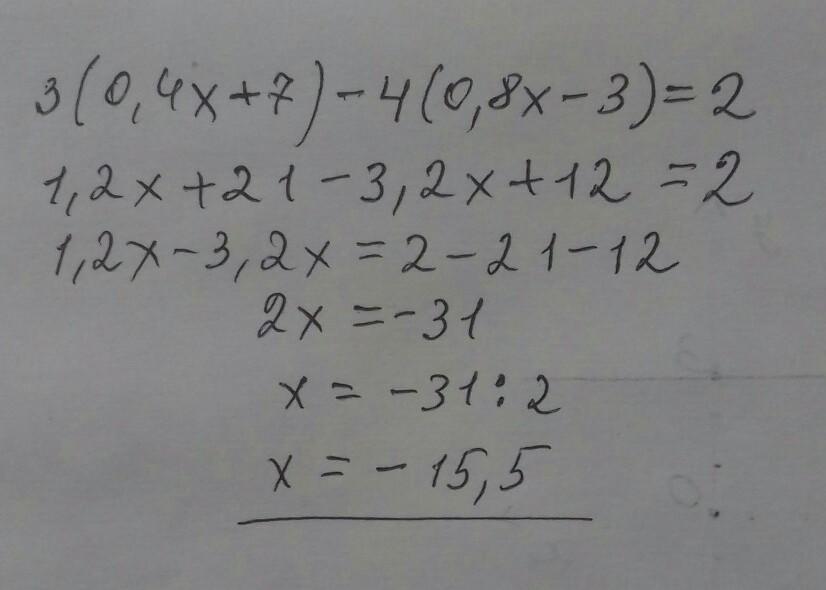 3(0,4x+7)-4(0,8x-3)=2
1,2x+21-3,2x+12=2
1,2x-3,2x=2-21-12
2x=-31
x=-31:2
x=-15,5